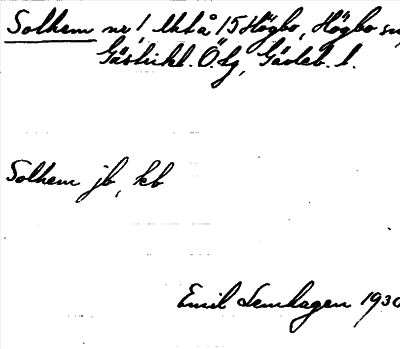 Solhem nr 1, Uhtå 15 Högbo, Högbo sn,
Gästrikl. Ö. dg, Gävleb. l.
Solhem jb, kb
Emil Lemhagen 1930